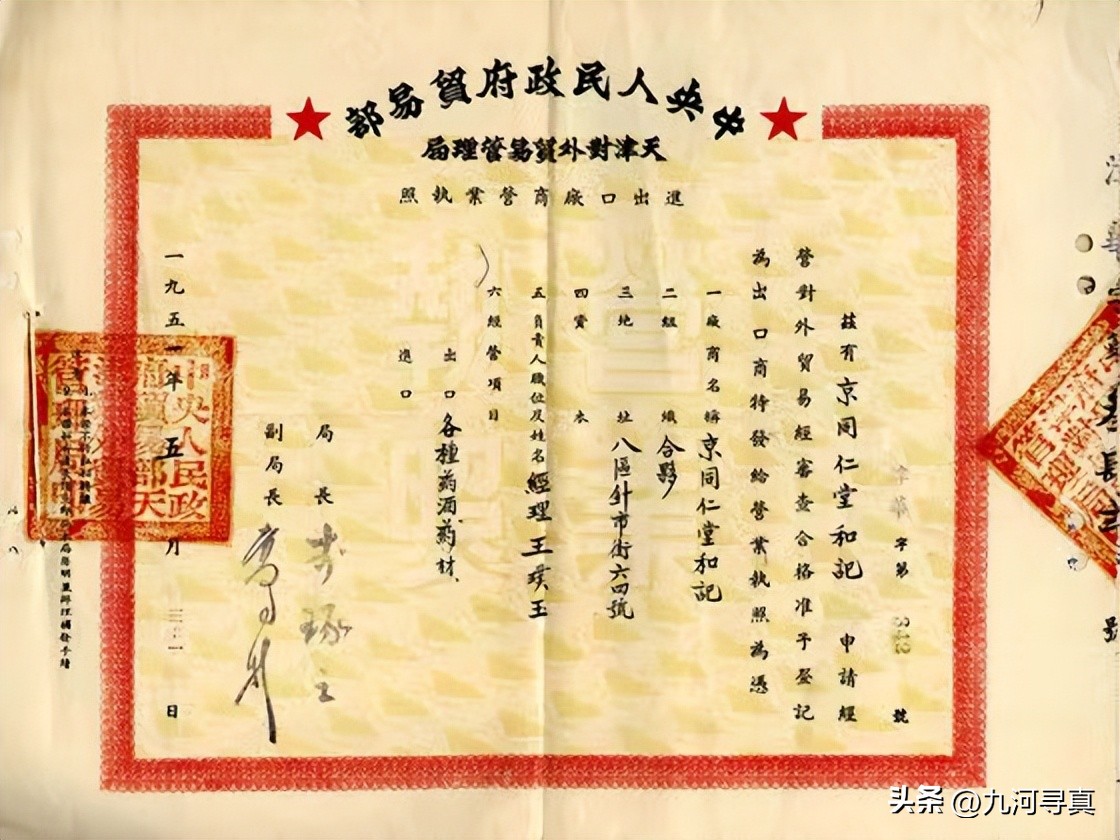 中央人民政府貿易部
天津對外貿易管理局
進出口廠商營業執照
字第342號
茲有京同仁堂和記申請經
營對外貿易經審查合格准予登記
為出口商特發給營業執照為憑
一廠商名稱京同仁堂和記
二組織合夥
三地址八區針市街六四號
四資本
五負責人職位及姓名經理王璞玉
六經營項目
出口各種葯酒葯材、
進口
局長
副局長
一九五一年五月三二一日
中央人民政
府貿易部天
津對外貿易
管理局
頭条 @九河寻真